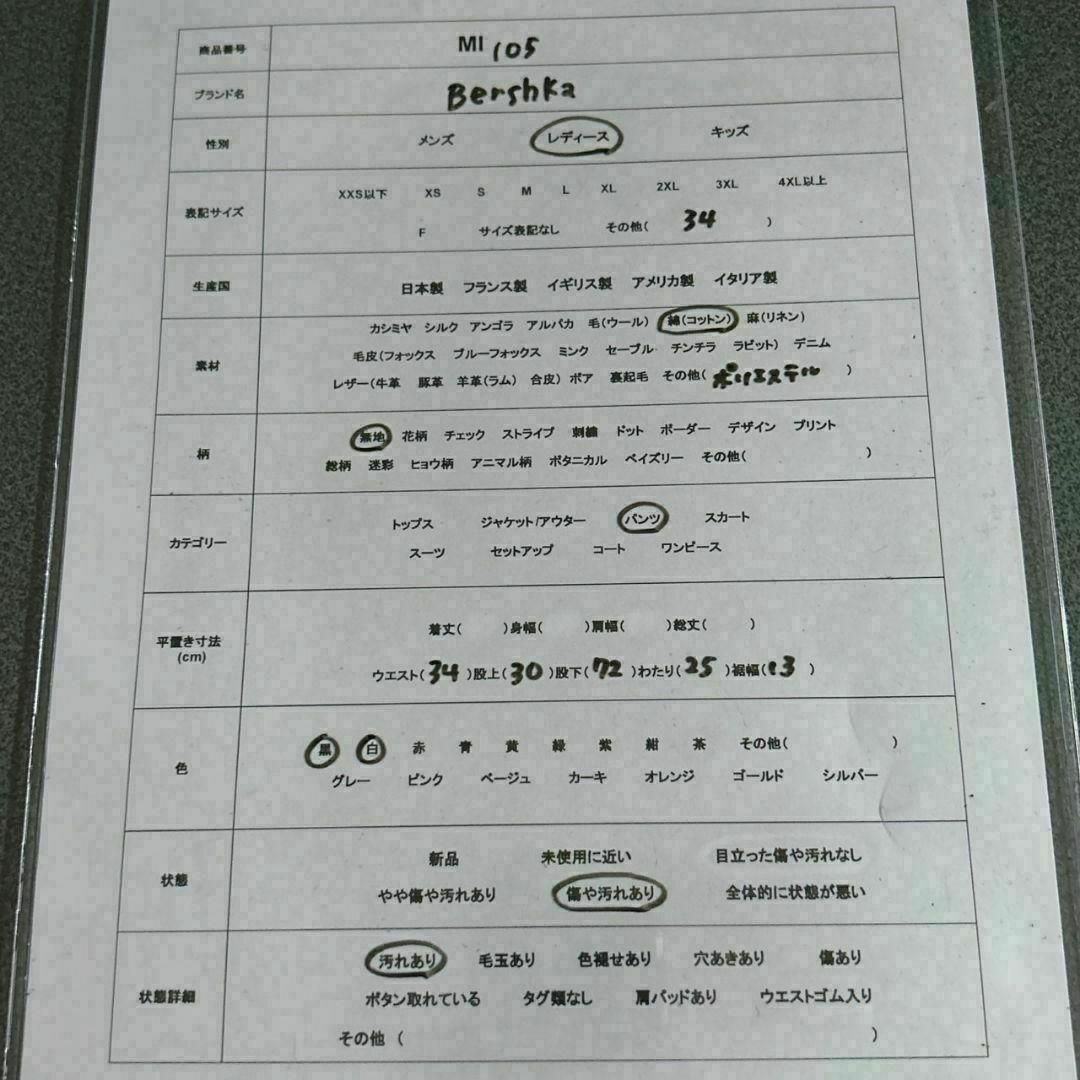 商品番号 MI 105
ブランド名 Bershka
性別 メンズ レディース キッズ
XXS以下 XS S M L XL 2XL 3XL 4XL以上
表記サイズ
F サイズ表記なし その他( 34 )
生産国 日本製 フランス製 イギリス製 アメリカ製 イタリア製
カシミヤ シルク アンゴラ アルパカ 毛(ウール) 綿(コットン) 麻(リネン)
毛皮(フォックス ブルーフォックス ミンク セーブル チンチラ ラビット) デニム
素材
レザー(牛革 豚革 羊革(ラム) 合皮) ボア 裏起毛 その他( ポリエステル )
無地 花柄 チェック ストライプ 刺繍 ドット ボーダー デザイン プリント
柄
総柄 迷彩 ヒョウ柄 アニマル柄 ボタニカル ペイズリー その他( )
トップス ジャケット/アウター パンツ スカート
カテゴリー
スーツ セットアップ コート ワンピース
着丈( )身幅( )肩幅( )総丈( )
平置き寸法
(cm)
ウエスト( 34 )股上( 30 )股下( 72 )わたり( 25 )裾幅( 13 )
黒 白 赤 青 黄 緑 紫 紺 茶 その他( )
色
グレー ピンク ベージュ カーキ オレンジ ゴールド シルバー
新品 未使用に近い 目立った傷や汚れなし
状態
やや傷や汚れあり 傷や汚れあり 全体的に状態が悪い
汚れあり 毛玉あり 色褪せあり 穴あきあり 傷あり
状態詳細
ボタン取れている タグ類なし 肩パッドあり ウエストゴム入り
その他 ( )